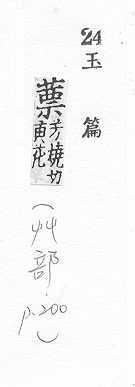 24
玉篇
蔈方燒切
黄花
(艸部 p.200)